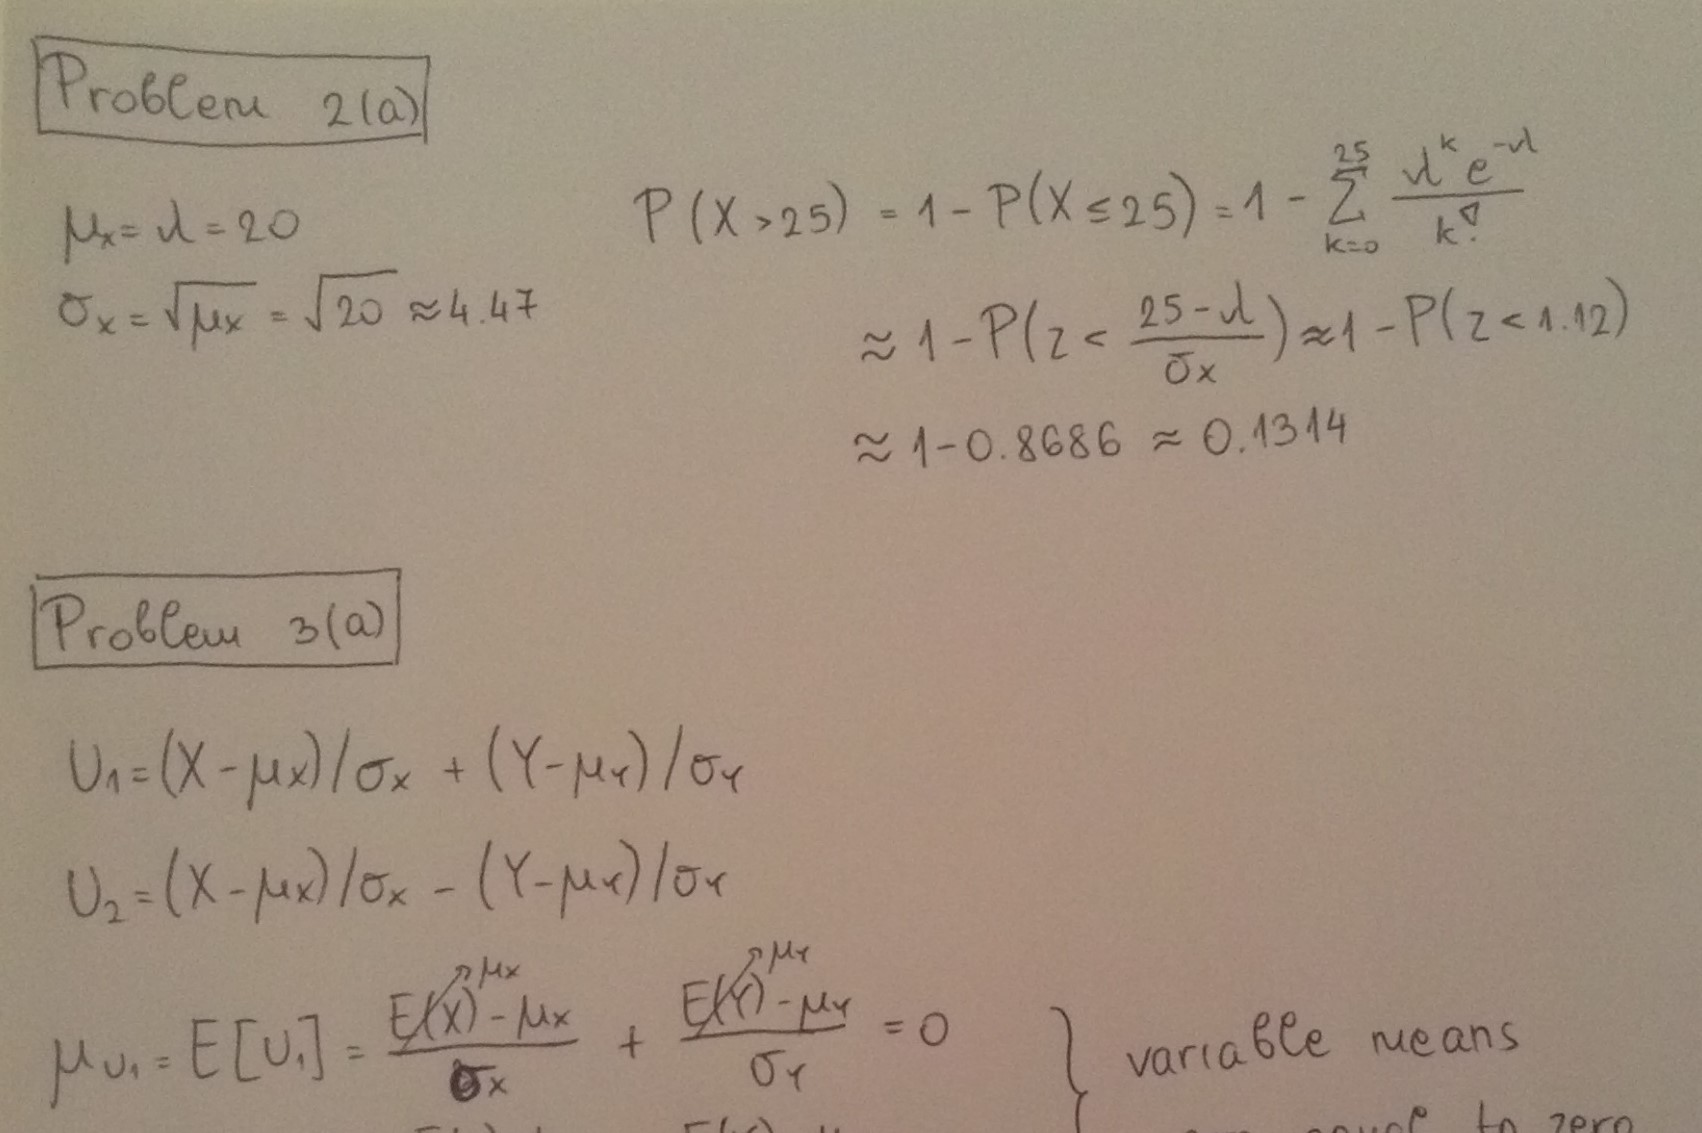 Problem 2(a)
μx = λ = 20
σx = √μx = √20 ≈ 4.47
P(X > 25) = 1 - P(X ≤ 25) = 1 - ∑_{k=0}^{25} λ^k e^{-λ} / k!
≈ 1 - P(z < (25 - λ) / σx) ≈ 1 - P(z < 1.12)
≈ 1 - 0.8686 ≈ 0.1314
Problem 3(a)
U1 = (X - μX)/σX + (Y - μY)/σY
U2 = (X - μX)/σX - (Y - μY)/σY
μX μY
μU1 = E[U1] = (E(X) - μX) / σX + (E(Y) - μY) / σY = 0 } variable means
equal to zero